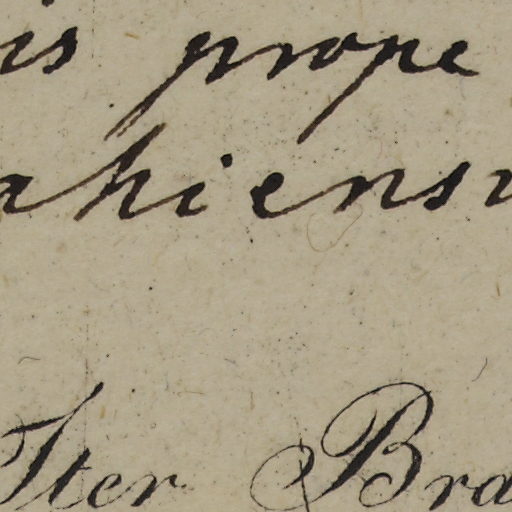 is prope
ahiens
Iter Bra